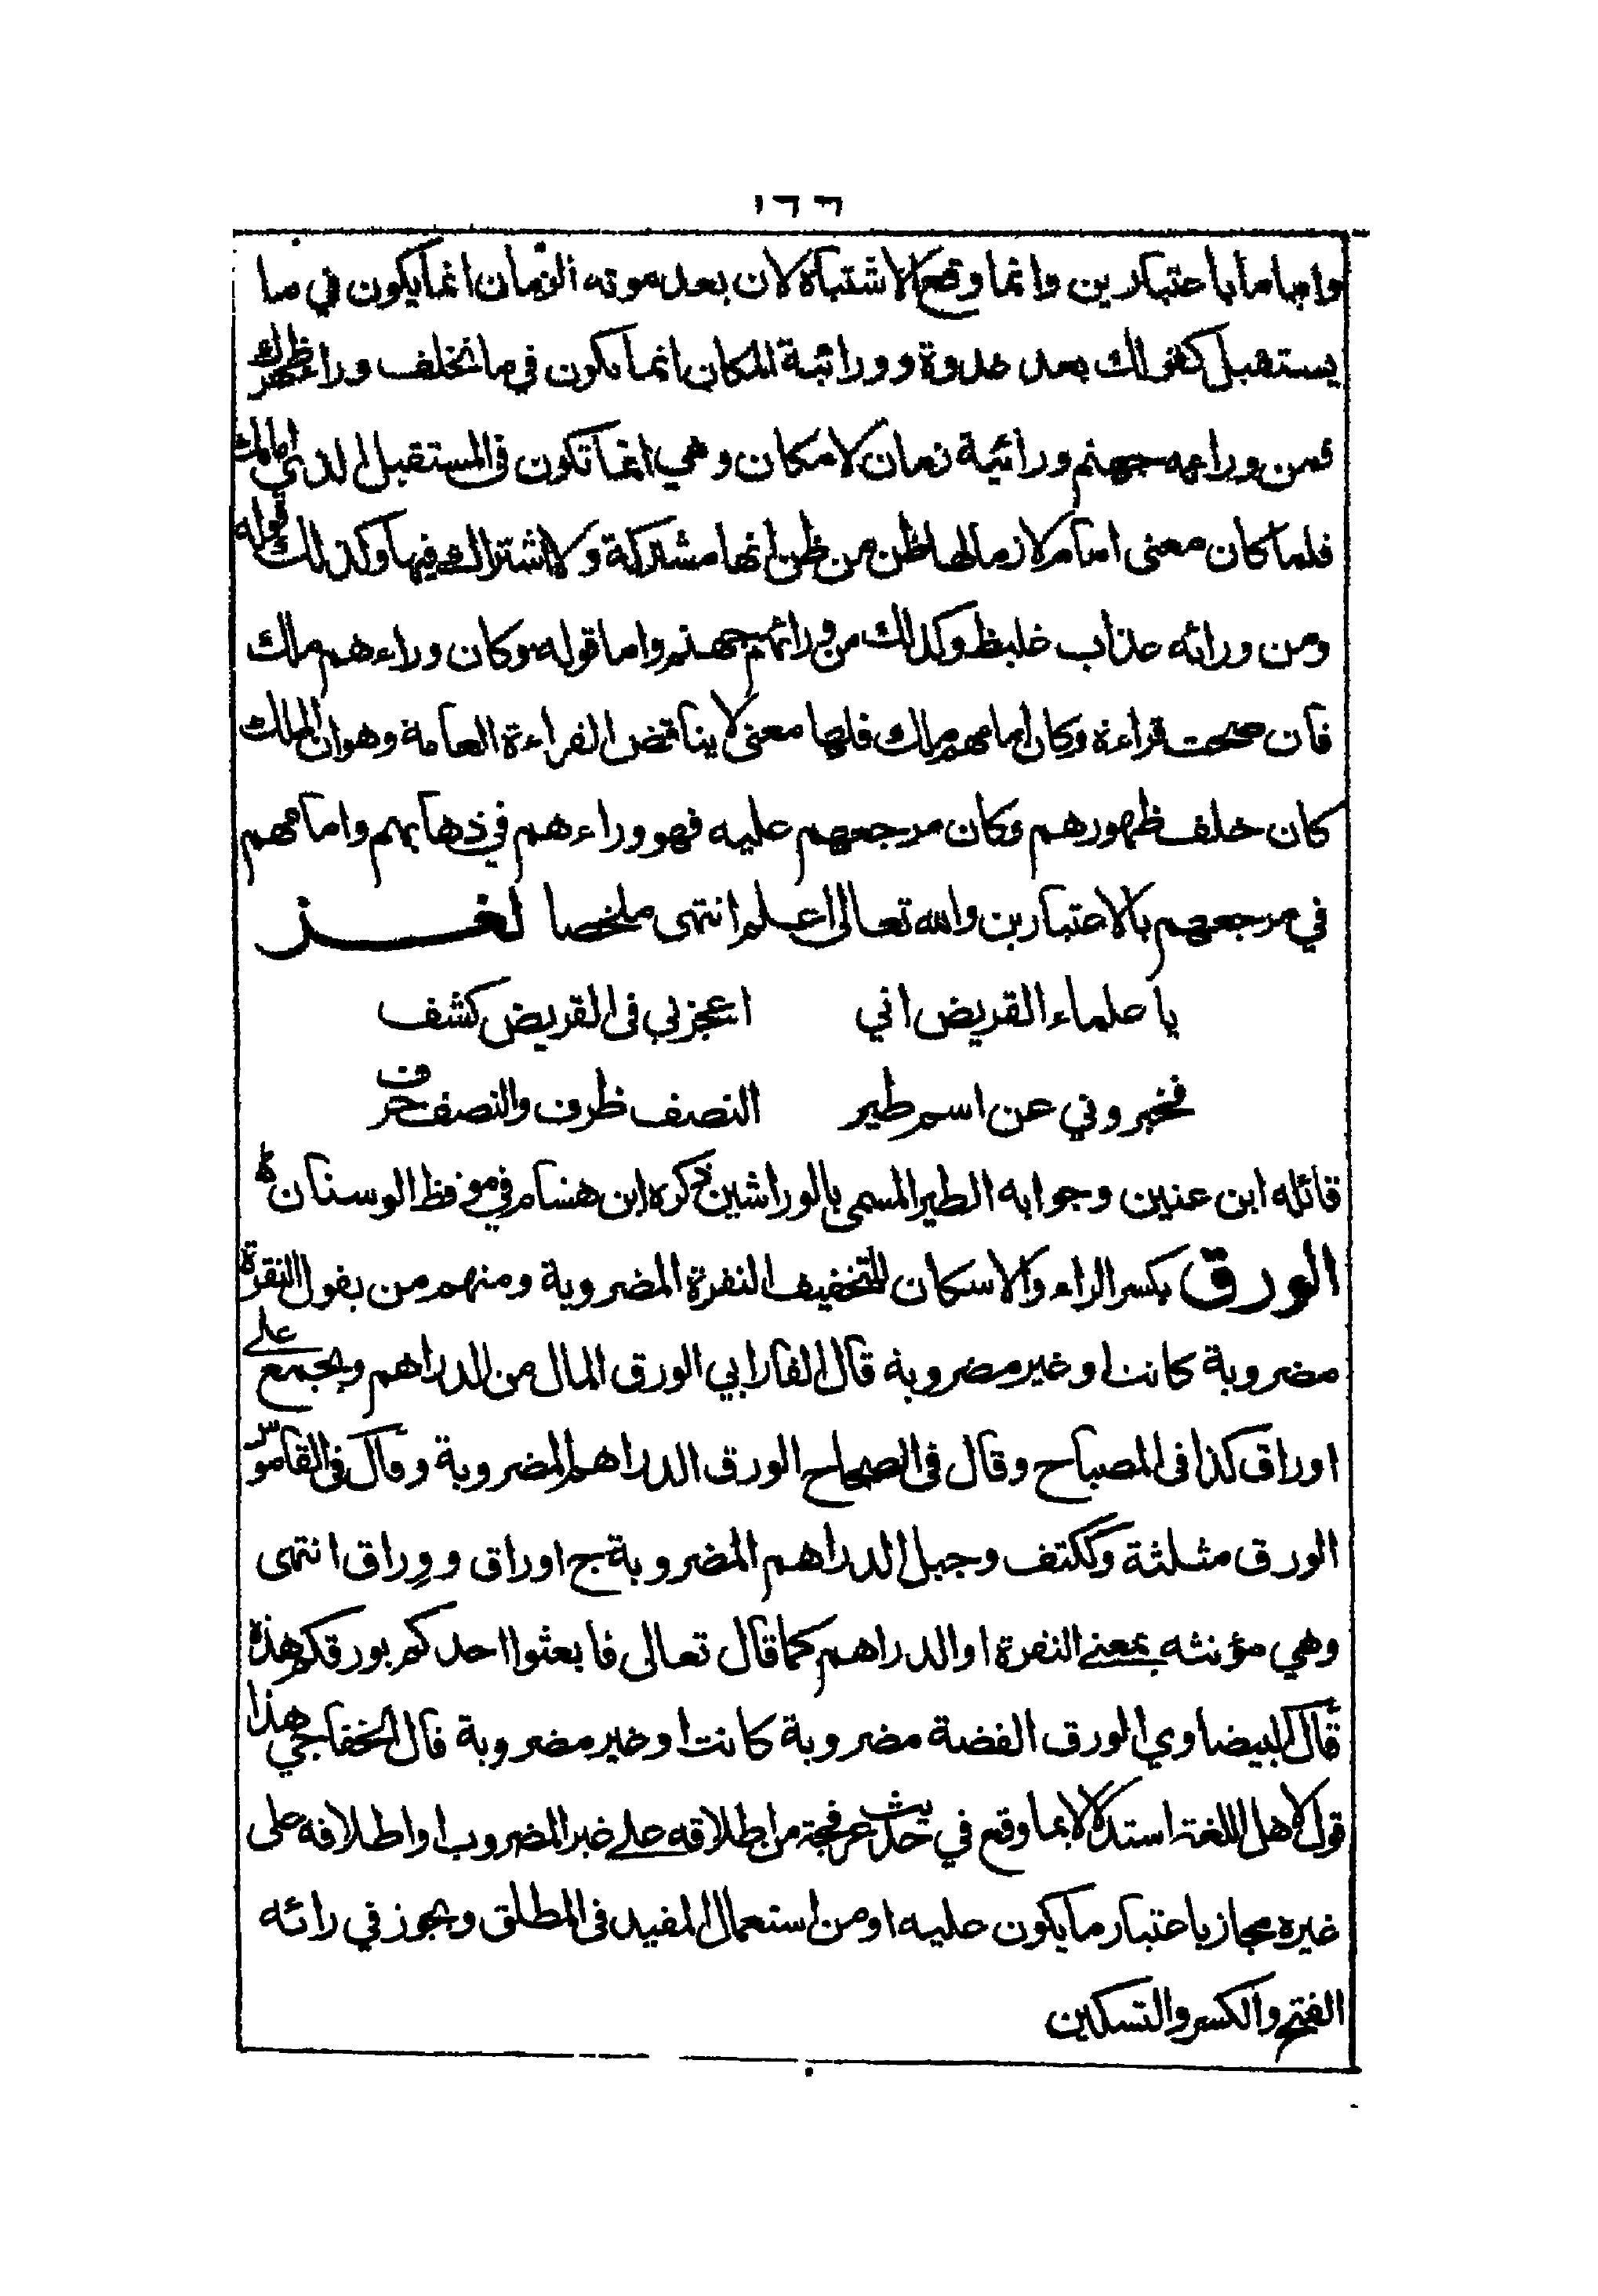 ١٦٦
واماما باعتبارين وانما وقع الاشتباه لان بعد موته الزمان انما يكون في ما
يستقبل كقولك بعد غدوة وورائية المكان انما تكون في ما تخلف وراء ظهرك
فمن ورائه جهنم ورائية زمان لا مكان وهي انما تكون في المستقبل الذي امامك
فلما كان معنى امام لازما لها ظن من ظن انها مشتركة ولا اشتراك فيها وكذلك قوله
ومن ورائه عذاب غليظ وكذلك من ورائهم جهنم واما قوله وكان وراءهم ملك
فان صحت قراءة وكان امامهم ملك فلها معنى لا يناقض القراءة العامة وهو ان الملك
كان خلف ظهورهم وكان مرجعهم عليه فهو وراءهم في ذهابهم وامامهم
في مرجعهم بالاعتبارين والله تعالى اعلم انتهى ملخصا لغـــز
يا علماء القريض اني اعجزني في القريض كشف
فخبروني عن اسم طير النصف ظرف والنصف حرف
قائله ابن عنين وجوابه الطير المسمى بالوراشين ذكره ابن هشام في موقظ الوسنان
الورق بكسر الراء والاسكان للتخفيف النقرة المضروبة ومنهم من يقول النقرة
مضروبة كانت او غير مضروبة قال الفارابي الورق المال من الدراهم ويجمع على
اوراق كذا في المصباح وقال في الصحاح الورق الدراهم المضروبة وقال في القاموس
الورق مثلثة وككتف وجبل الدراهم المضروبة ج اوراق ووراق انتهى
وهي مؤنثه بمعنى النقرة او الدراهم كما قال تعالى فابعثوا احدكم بورقكم هذه
قال البيضاوي الورق الفضة مضروبة كانت او غير مضروبة قال الخفاجي هذا
قول لاهل اللغة استدلالا بما وقع في حديث عرفجة من اطلاقه على غير المضروب او اطلاقه على
غيره مجاز باعتبار ما يكون عليه او من استعمال المقيد في المطلق ويجوز في رائه
الفتح والكسر والتسكين